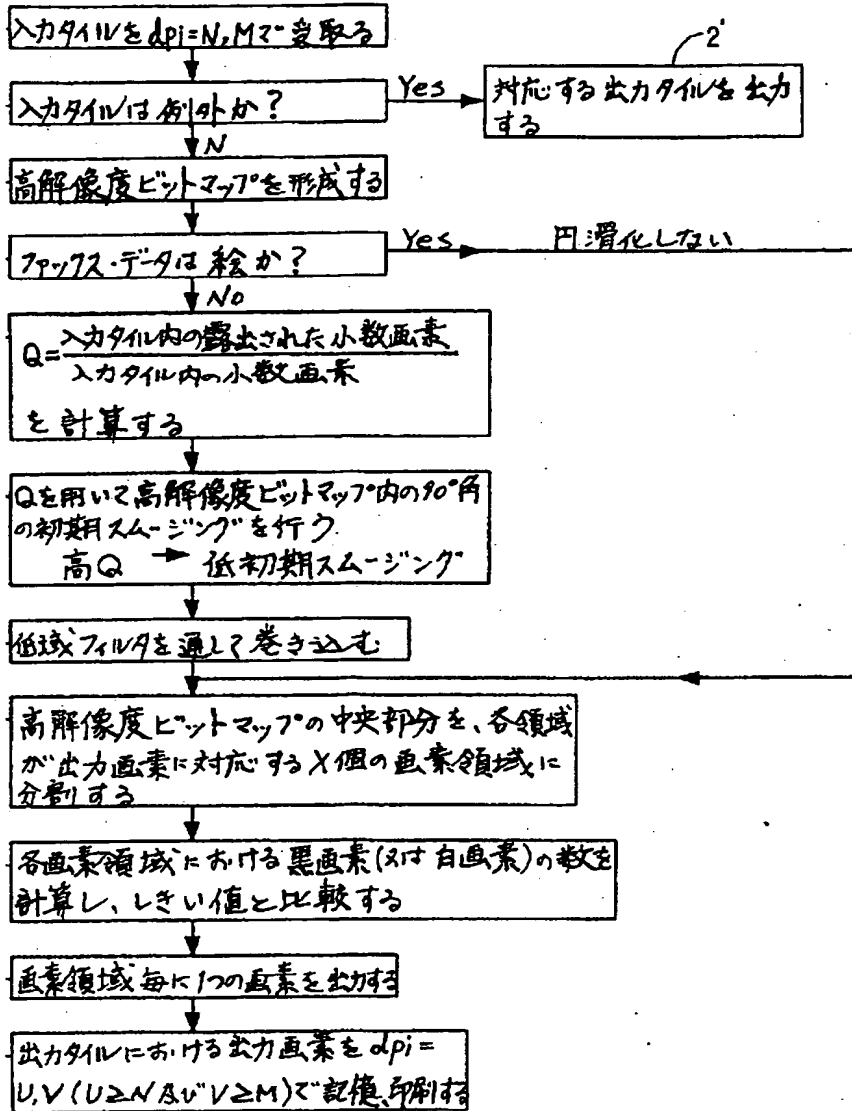 入力タイルをdpi=N,Mで受取る
2'
入力タイルは例外か?
Yes
対応する出力タイルを出力
する
N
高解像度ビットマップを形成する
ファックス・データは絵か?
Yes
円滑化しない
No
Q=入力タイル内の露出された小数画素
入力タイル内の小数画素
を計算する
Qを用いて高解像度ビットマップ内の90°角
の初期スムージングを行う
高Q → 低初期スムージング
低域フィルタを通して巻き込む
高解像度ビットマップの中央部分を、各領域
が出力画素に対応するX個の画素領域に
分割する
各画素領域における黒画素(又は白画素)の数を
計算し、しきい値と比較する
画素領域毎に1つの画素を出力する
出力タイルにおける出力画素をdpi=
U,V(U≥N及びV≥M)で記憶、印刷する